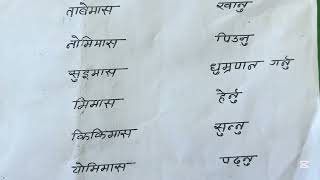 ताबेमास खानु
नोमिमास पिउनु
सुइमास धुम्रपान गर्नु
मिमास हेर्नु
किकिमास सुन्नु
योमिमास पढ्नु